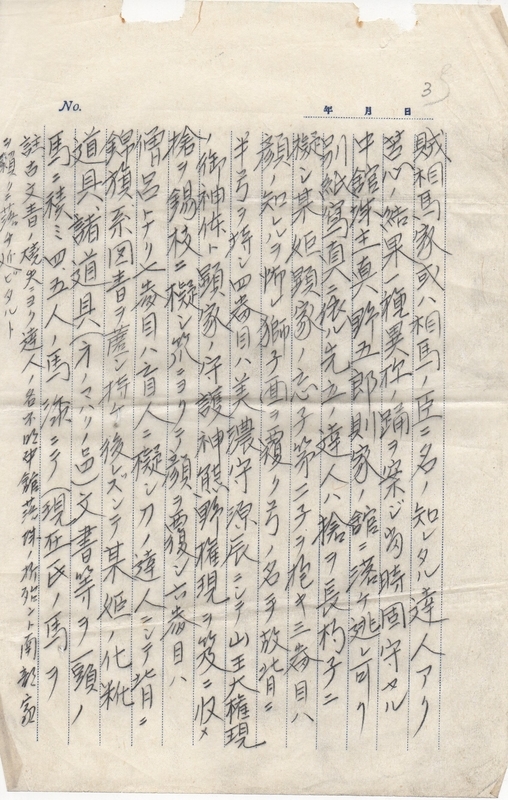 3
No.
年 月 日
賊相馬家或ハ相馬ノ臣ニ名ノ知レタル達人アリ
苦心ノ結果一種異様ノ踊ヲ案ジ当時固守セル
中館珠主真野五郎則家ノ館ニ落ケ逃レ可リ
別紙寫真ニ依ル先立ノ達人ハ槍ヲ長杓子ニ
擬シ某姫顕家ノ忘子第二子ヲ抱キ三歳目ハ
顔ノ知レルヲ怖レ獅子面ヲ覆リ弓ノ名手故背ニ
半弓ヲ持シ四歳目ハ美濃守源辰ニシテ山王大権現
ノ御神体ト顕家ノ守護神熊野権現ヲ笈ニ收メ
槍ヲ錫枝ニ擬シ笠ニヨリテ顔ヲ覆シ六歳目ハ
僧呂トナリ七歳目ハ盲人ニ擬シ刀ノ達人ニシテ背ニ
錦旗系図書ヲ
持ケ後レズシテ某姫ノ化粧
道具諸道具(方ノマハリノ品)文書等ヲ一頭ノ
馬ニ積ミ四、五人ノ馬添ニテ(現在氏ノ馬ヲ
註古文書ノ焼失ニヨリ達人ノ名不明
南部家
ヲ頼